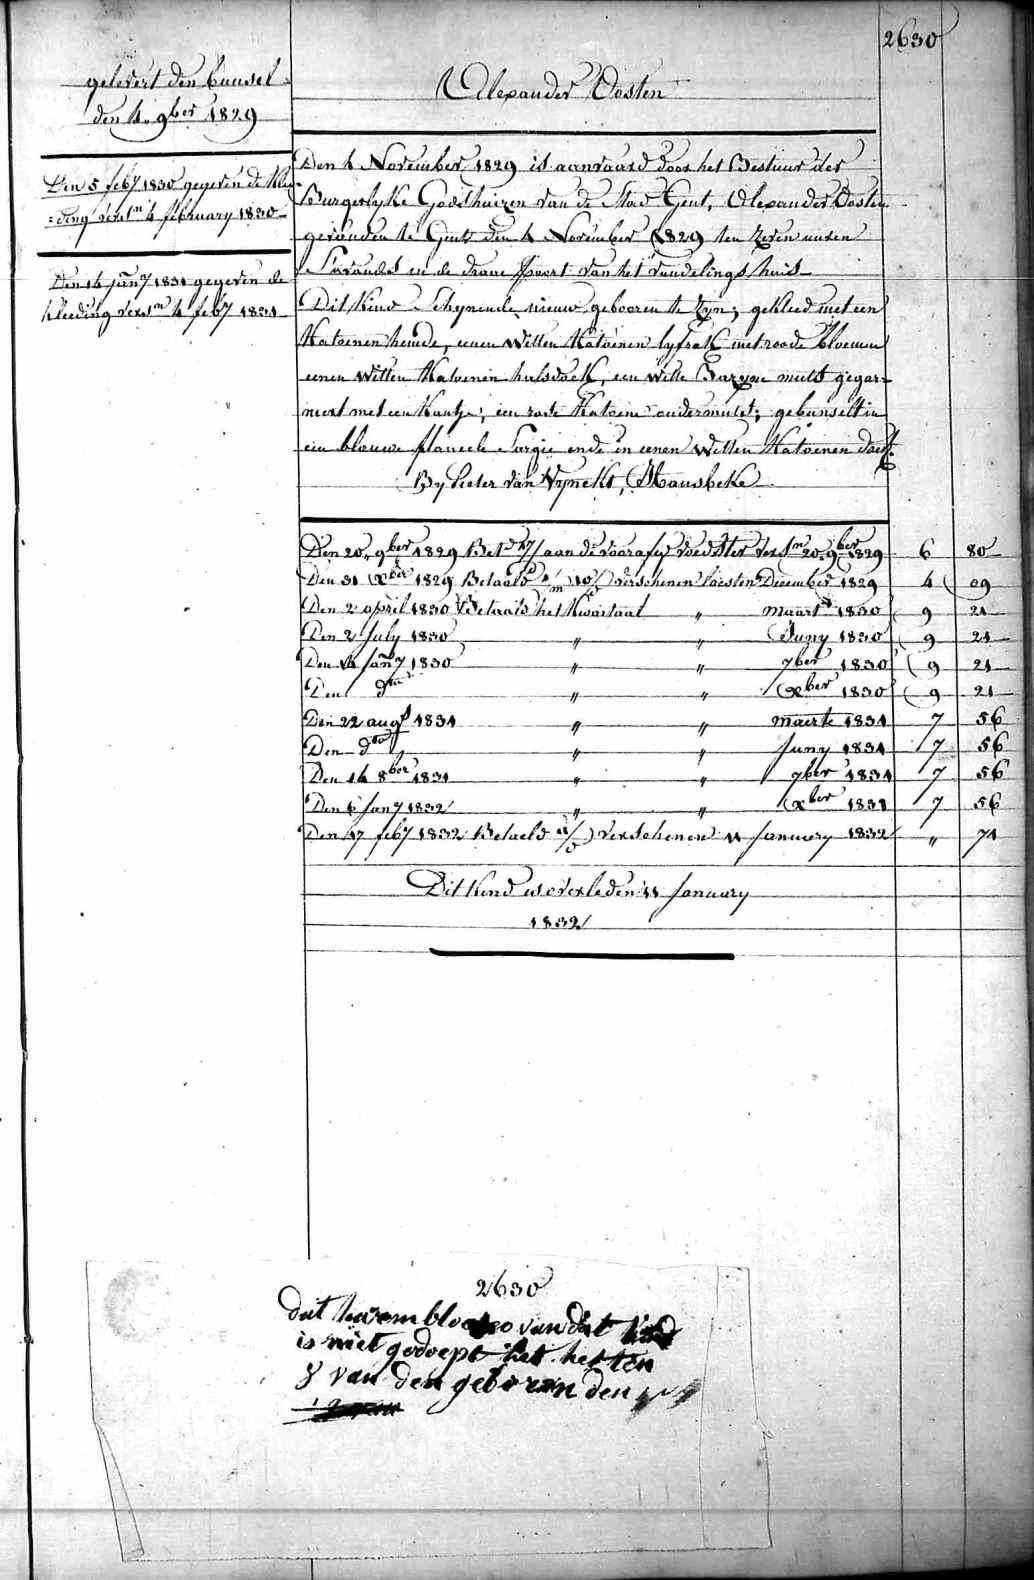 2630
gelevert den bunsel
den 4. 9ber 1829
Alexander Oosten
Den 5 feby 1830 gegeven de klee
=ding versn 4 february 1830
Den 14 Jany 1831 gegeven de
kleeding versn 4 feby 1831
Den 4 November 1829 is aanvaard door het Bestuur der
Burgerlyke Godshuizen van de Stad Gent, Alexander Oosten
gevonden te Gent den 4 November 1829 ten zeven uuren
s'avonds in de draai poort van het vondelings huis
Dit kind schynende nieuw gebooren te zyn; gekleed met een
Katoenen hemde, eenen witten Katoenen lyfrok met roode bloemen
eenen witten Katoenen halsdoek, een witte muts gegar=
neert met een Kantje; een Katoene ondermuts; gebunselt in
een blauwe flaneele Sargie ende in eenen witten Katoenen doek.
By Pieter van
Den 20. 9ber 1829 Betd aan de voedster versn 20. 9ber 1829 6 80
Den 31 Xber 1829 Betaald verschenen laesten December 1829 4 09
Den 2 april 1830 Betaald het Kwartaal " maart 1830 9 21
Den 2 July 1830 " " Juny 1830 9 21
Den 14 Jany 1830 " " 7ber 1830 9 21
Den dto " " Xber 1830 9 21
Den 22 augt 1831 " " maerte 1831 7 56
Den dto " " Juny 1831 7 56
Den 14 8ber 1831 " " 7ber 1831 7 56
Den 6 Jany 1832 " " Xber 1831 7 56
Den 17 feby 1832 Betaeld verschenen 11 January 1832 " 71
Dit Kind is overleden 11 January
1832
2630
dat van dat kind
is niet gedoept het het ten
8 van den geboren den